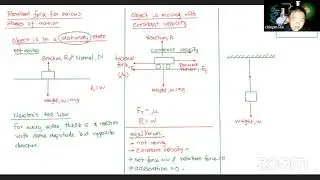 Resultant force for various
states of motion
Object is in a stationary state
not moving
Reaction, R / Normal, N
Weight, w = mg
Newton's 3rd law
For every action there is a reaction
with same magnitude but opposite
direction.
Object is moving with
constant velocity
Reaction, R
constant velocity
frictional
force
(μ)
Forward
thrust, FT
Weight, w = mg
FT = μ
R = W
equilibrium
- not moving
- constant velocity
- net force = 0 / resultant force = 0
- acceleration = 0
Weight, w
zoom